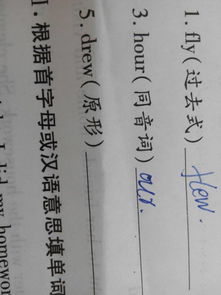 1. fly(过去式) flew.
3. hour(同音词) our.
5. drew(原形)
I. 根据首字母或汉语意思填单词
I did my homewor